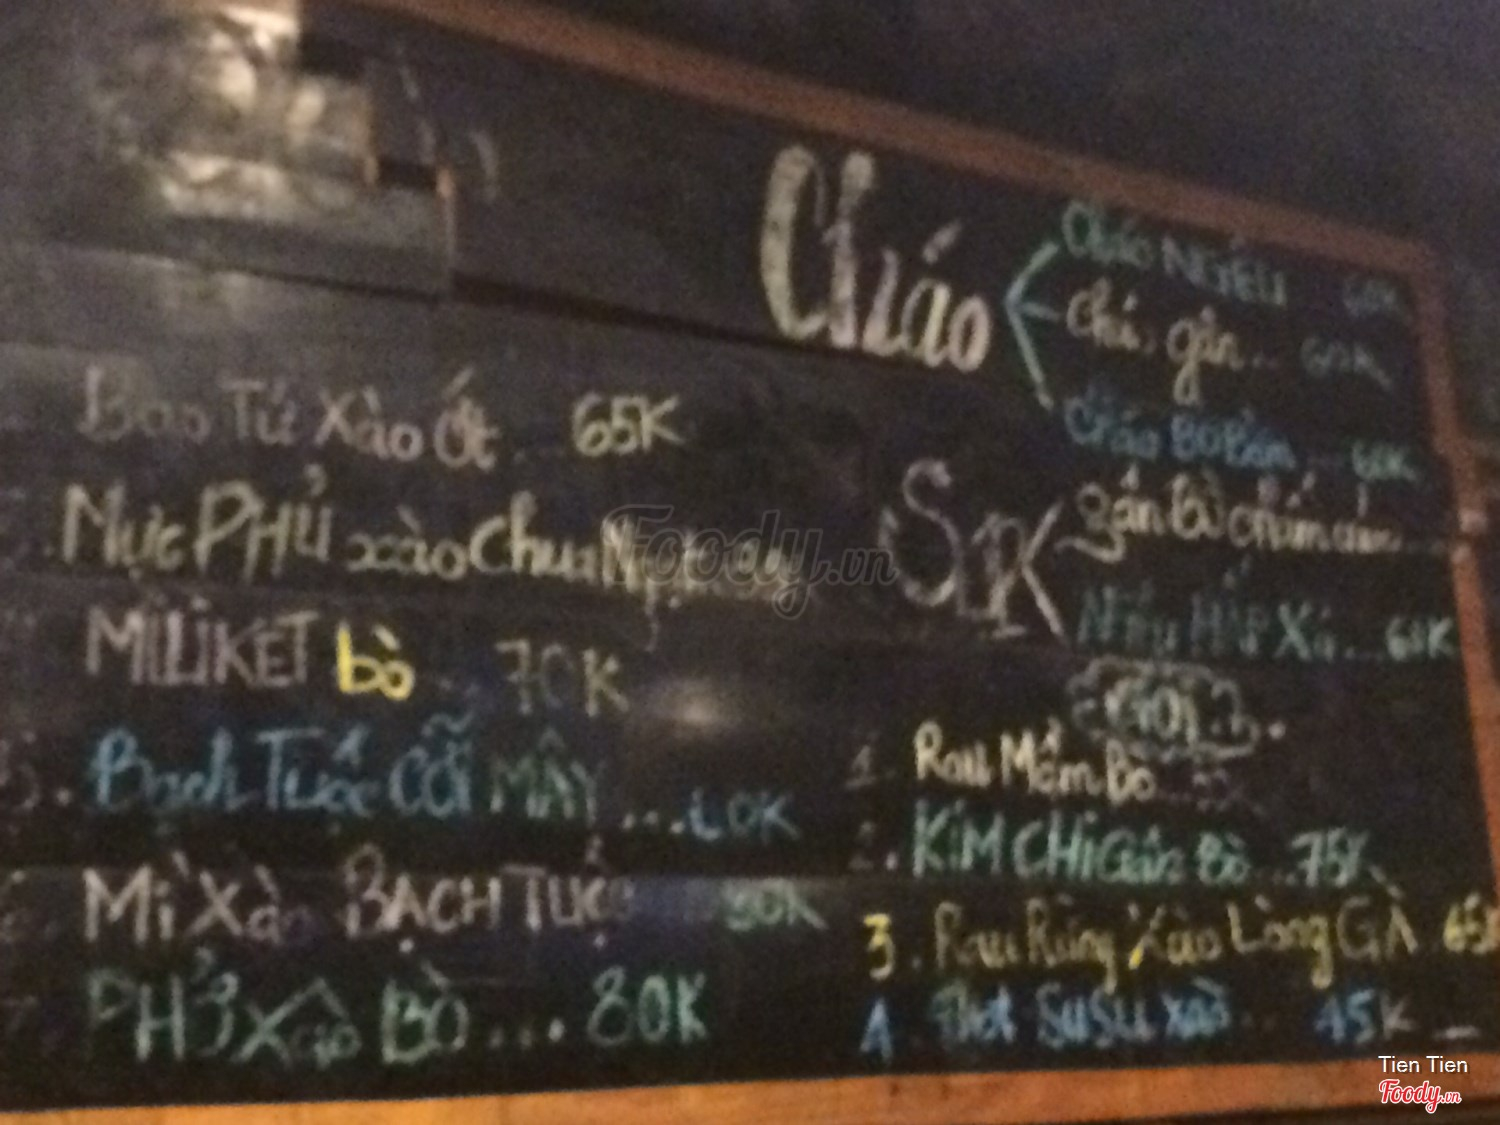 Cháo
Cháo NGHÊU 60K
60K
Cháo 60K
Bao Tử Xào Ớt ... 65K
Mực PHỦ xào Chua Ngọt
MILIKET bò ... 70K
Bạch Tuộc CỖI MÂY ... 60K
Mì Xào BẠCH TUỘC 80K
PHỞ Xào BÒ .... 80K
gân bò chấm
HẤP Xả .... 60K
GỎI
1. Rau Mầm Bò
2. KIM CHI Gân Bò ... 75K
3. Rau Rừng Xào Lòng GÀ 65K
SUSU xào 45K
Foody.vn
Tien Tien
Foody.vn